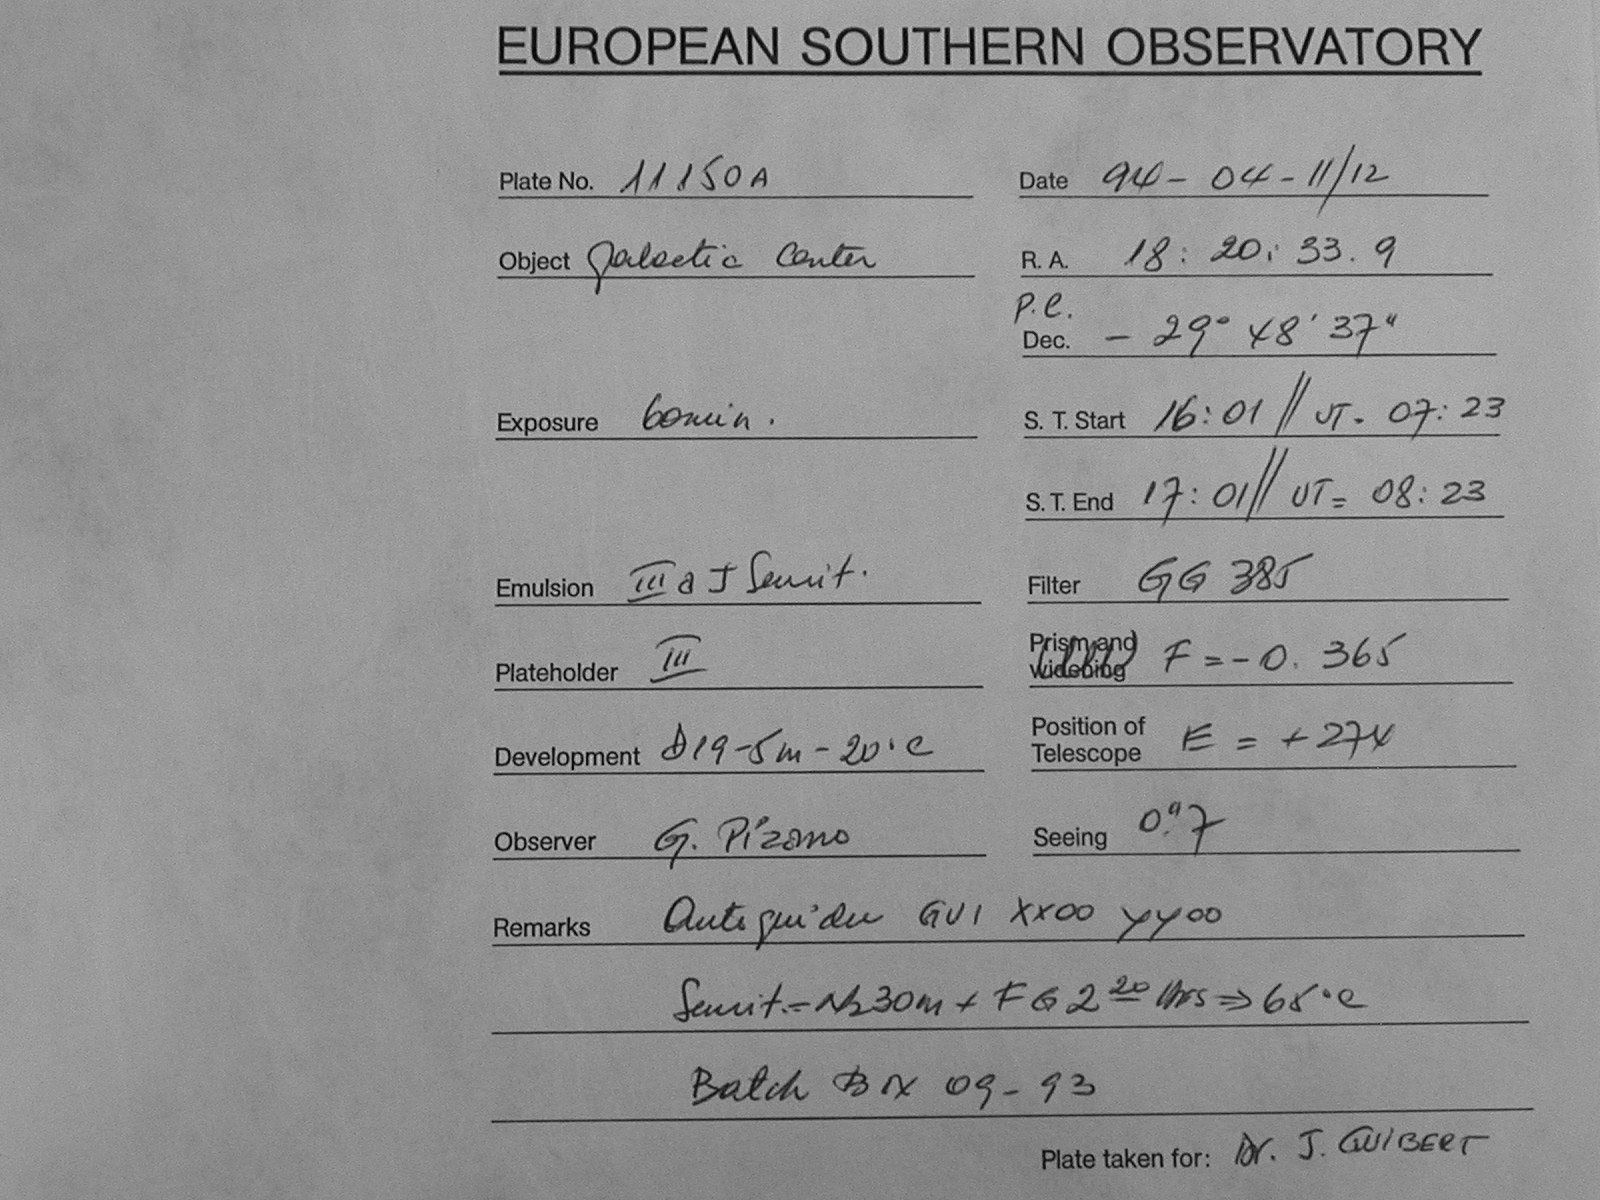 EUROPEAN SOUTHERN OBSERVATORY
Plate No. 11150A Date 94-04-11/12
Object galactic Center R. A. 18: 20: 33. 9
P.C.
Dec. - 29° 48' 37"
Exposure 60min. S. T. Start 16:01 // UT- 07: 23
S. T. End 17:01 // UT= 08: 23
Emulsion III a J Sensit. Filter GG 385
Plateholder III Prism and widening F = -0. 365
Development D19-5m-20°C Position of Telescope E = +274
Observer G. Pizarro Seeing 0."7
Remarks Autoguider GUI XX00 YY00
Sensit.= N2 30m + F G 2 20 Hrs => 65°C
Batch 09-93
Plate taken for: Dr. J. GUIBERT